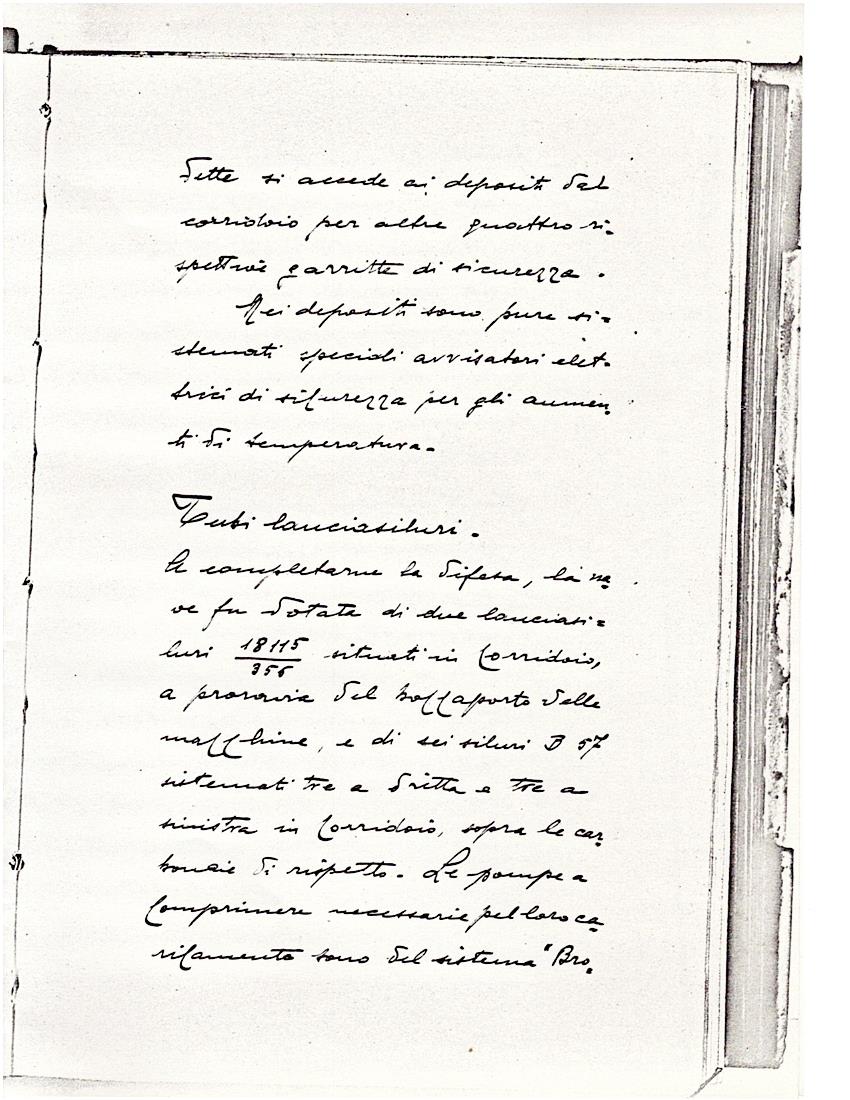 dette si accede ai depositi dal
corridoio per altre quattro ri=
spettive garritte di sicurezza.
Nei depositi sono pure si=
stemati speciali avvisatori elet=
trici di sicurezza per gli aumen=
ti di temperatura.
Tubi lanciasiluri.
A completarne la difesa, la na=
ve fu dotata di due lanciasi=
luri 18115/356 situati in Corridoio,
a proravia del boccaporto delle
macchine, e di sei siluri B 57
sistemati tre a dritta e tre a
sinistra in Corridoio, sopra le car=
bonaie di rispetto. Le pompe a
Comprimere necessarie pel loro ca=
ricamento sono del sistema "Bro=